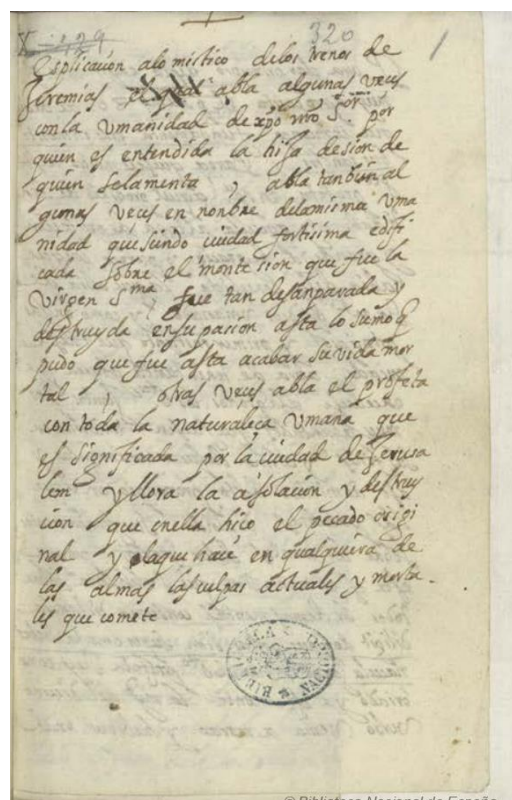 X 129 320 1
Esplicacion alo mistico delos trenos de
Jeremias el qual abla algunas veces
con la vmanidad de xpo nro Sor por
quien es entendida la hija de sion de
quien se lamenta , abla tanbien al
gunas veces en nonbre dela misma vma
nidad que siendo ciudad fortisima edifi
cada sobre el monte sion que fue la
virgen Sma, fue tan desanparada y
destruyda en su pasion asta lo sumo q
pudo que fue asta acabar su vida mor
tal , otras veces abla el profeta
con toda la naturaleça vmana que
es significada por la ciudad de Jerusa
lem y llora la asolacion y destruy
cion que en ella hiço el pecado origi
nal y la que hace en qualquiera de
las almas las culpas actuales y morta
les que comete
© Biblioteca Nacional de España